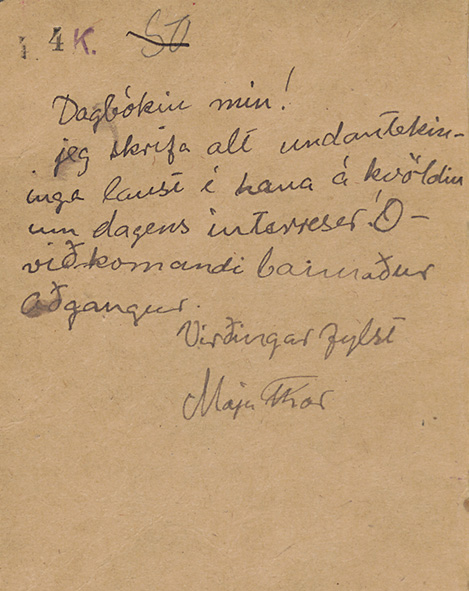 4 K. 50
Dagbókin mín!
jeg skrifa alt undantekin-
inga laust í hana á kvöldin
um dagens interreser! Ó-
viðkomandi bannaður
aðgangur.
Virðingar fylst
Maja Thor